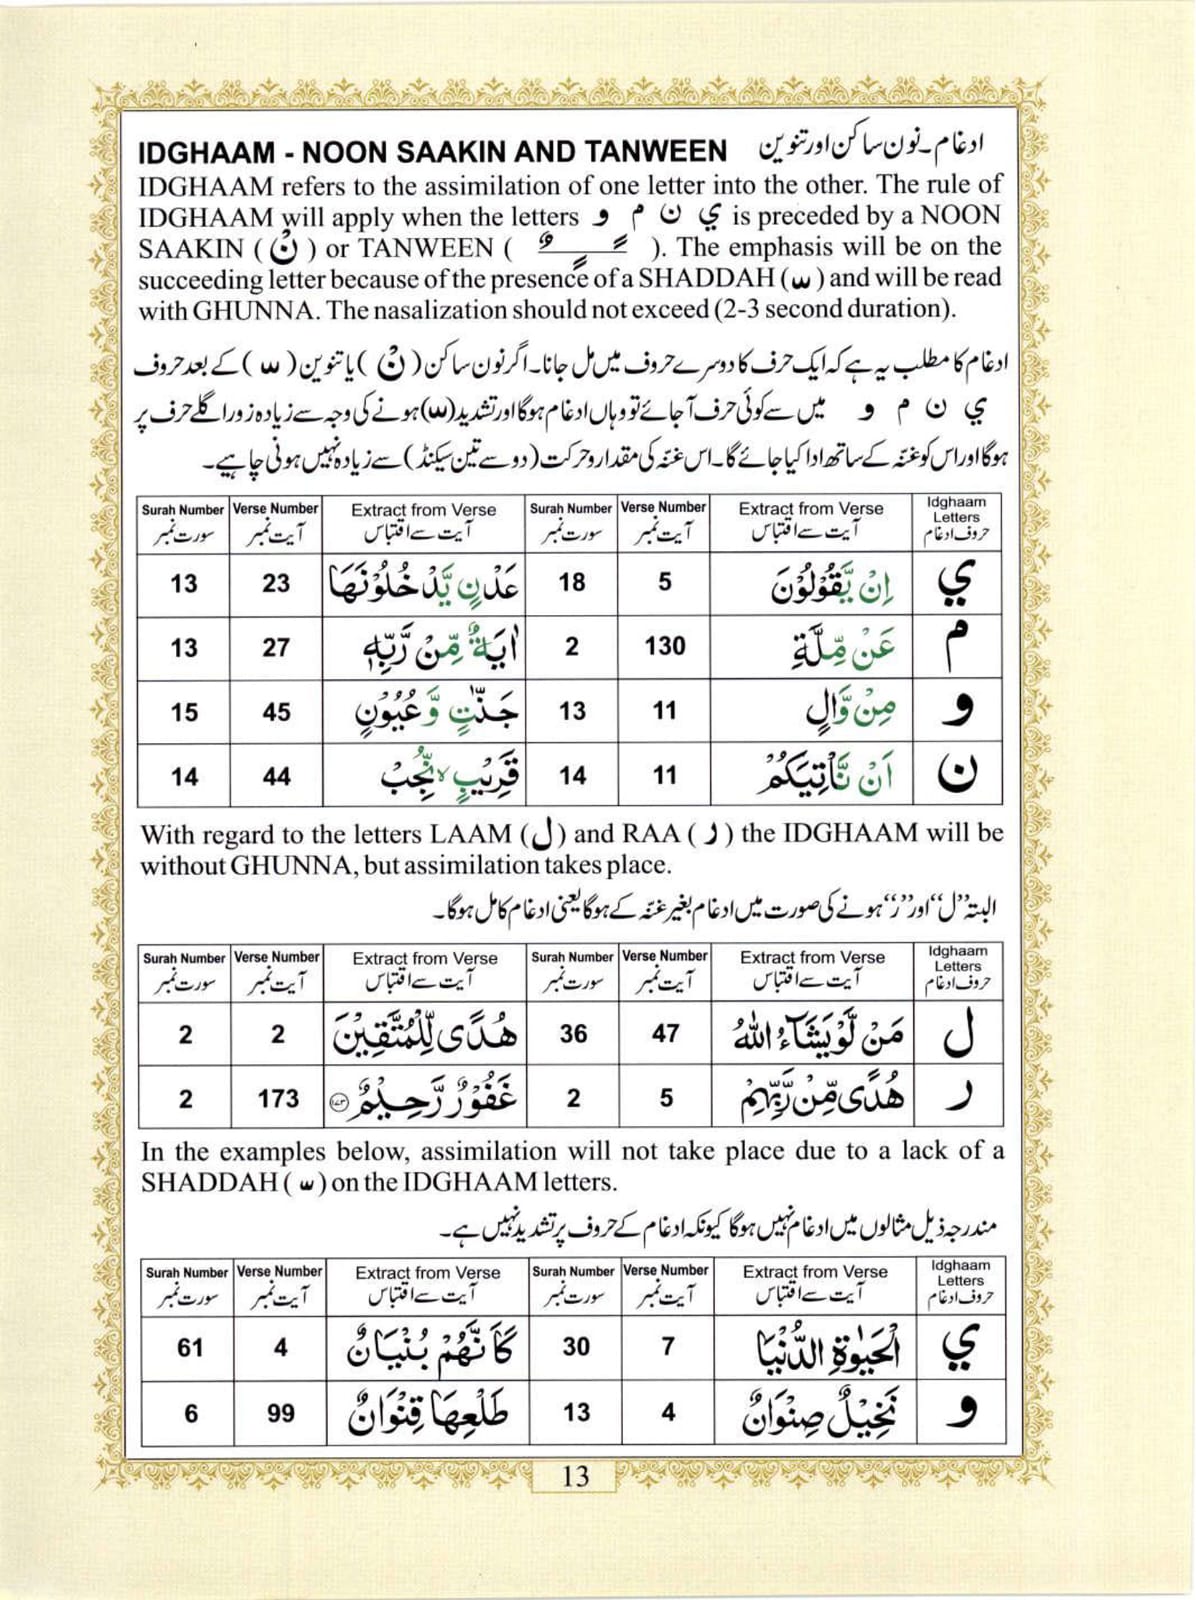 IDGHAAM - NOON SAAKIN AND TANWEEN ادغام۔نون ساکن اور تنوین
IDGHAAM refers to the assimilation of one letter into the other. The rule of
IDGHAAM will apply when the letters ي ن م و is preceded by a NOON
SAAKIN ( نْ ) or TANWEEN ( ـًـٍـٌ ). The emphasis will be on the
succeeding letter because of the presence of a SHADDAH ( ّ ) and will be read
with GHUNNA. The nasalization should not exceed (2-3 second duration).
ادغام کا مطلب یہ ہے کہ ایک حرف کا دوسرے حروف میں مل جانا۔ اگر نون ساکن ( نْ ) یا تنوین ( ّ ) کے بعد حروف
ي ن م و میں سے کوئی حرف آ جائے تو وہاں ادغام ہوگا اور تشدید( ّ )ہونے کی وجہ سے زیادہ زور اگلے حرف پر
ہوگا اور اس کو غنّہ کے ساتھ ادا کیا جائے گا۔ اس غنّہ کی مقدار و حرکت (دو سے تین سیکنڈ) سے زیادہ نہیں ہونی چاہیے۔
Surah Number Verse Number Extract from Verse Surah Number Verse Number Extract from Verse Idghaam Letters
سورت نمبر آیت نمبر آیت سے اقتباس سورت نمبر آیت نمبر آیت سے اقتباس حروف ادغام
13 23 عَدْنٍ يَّدْخُلُوْنَهَا 18 5 اِنْ يَّقُوْلُوْنَ ي
13 27 اٰيَةٌ مِّنْ رَّبِّهٖ 2 130 عَنْ مِّلَّةِ م
15 45 جَنّٰتٍ وَّعُيُوْنٍ 13 11 مِنْ وَّالٍ و
14 44 قَرِيْبٍ ۙ نُّجِبْ 14 11 اَنْ نَّاْتِيَكُمْ ن
With regard to the letters LAAM ( ل ) and RAA ( ر ) the IDGHAAM will be
without GHUNNA, but assimilation takes place.
البتہ ”ل“ اور ”ر“ ہونے کی صورت میں ادغام بغیر غنّہ کے ہوگا یعنی ادغام کامل ہوگا۔
Surah Number Verse Number Extract from Verse Surah Number Verse Number Extract from Verse Idghaam Letters
سورت نمبر آیت نمبر آیت سے اقتباس سورت نمبر آیت نمبر آیت سے اقتباس حروف ادغام
2 2 هُدًى لِّلْمُتَّقِيْنَ 36 47 مَنْ لَّوْ يَشَآءُ اللّٰهُ ل
2 173 غَفُوْرٌ رَّحِيْمٌ ۝۱۷۳ 2 5 هُدًى مِّنْ رَّبِّهِمْ ر
In the examples below, assimilation will not take place due to a lack of a
SHADDAH ( ّ ) on the IDGHAAM letters.
مندرجہ ذیل مثالوں میں ادغام نہیں ہوگا کیونکہ ادغام کے حروف پر تشدید نہیں ہے۔
Surah Number Verse Number Extract from Verse Surah Number Verse Number Extract from Verse Idghaam Letters
سورت نمبر آیت نمبر آیت سے اقتباس سورت نمبر آیت نمبر آیت سے اقتباس حروف ادغام
61 4 كَاَنَّهُمْ بُنْيَانٌ 30 7 الْحَيٰوةِ الدُّنْيَا ي
6 99 طَلْعِهَا قِنْوَانٌ 13 4 نَخِيْلٌ صِنْوَانٌ و
13